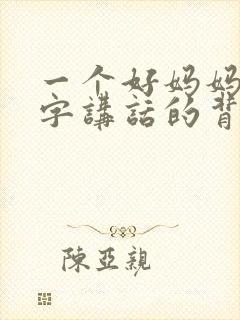 一个好妈妈
字講話的背
陳亞親